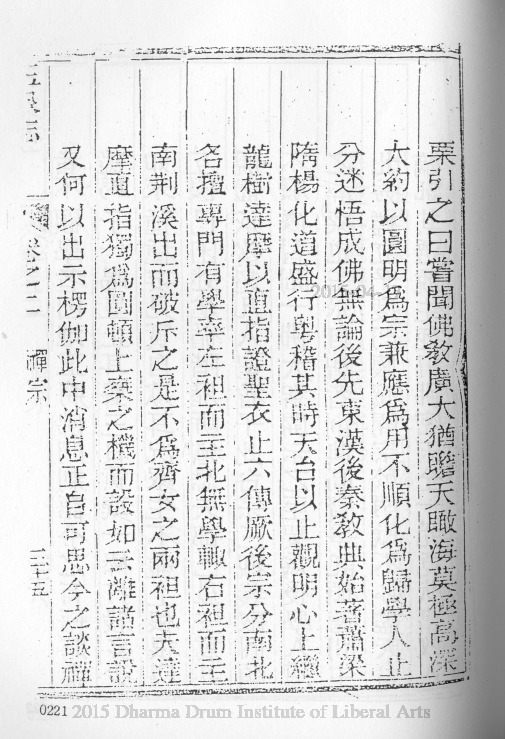 栗引之曰嘗聞佛敎廣大猶瞻天瞰海莫極高深
大約以圓明爲宗兼應爲用不順化爲歸學人止
分迷悟成佛無論後先東漢後秦敎典始著蕭梁
隋楊化道盛行粤稽其時天台以止觀明心上繼
龍樹達摩以直指證聖衣止六傳厥後宗分南北
各擅專門有學率左袒而主北無學輙右袒而主
南荆溪出而破斥之是不爲齊女之兩袒也夫達
摩直指獨爲圓頓上乘之機而設如云離諸言說
又何以出示楞伽此中消息正自可思今之談禪
卷之二 禪宗 三十五
0221 2015 Dharma Drum Institute of Liberal Arts